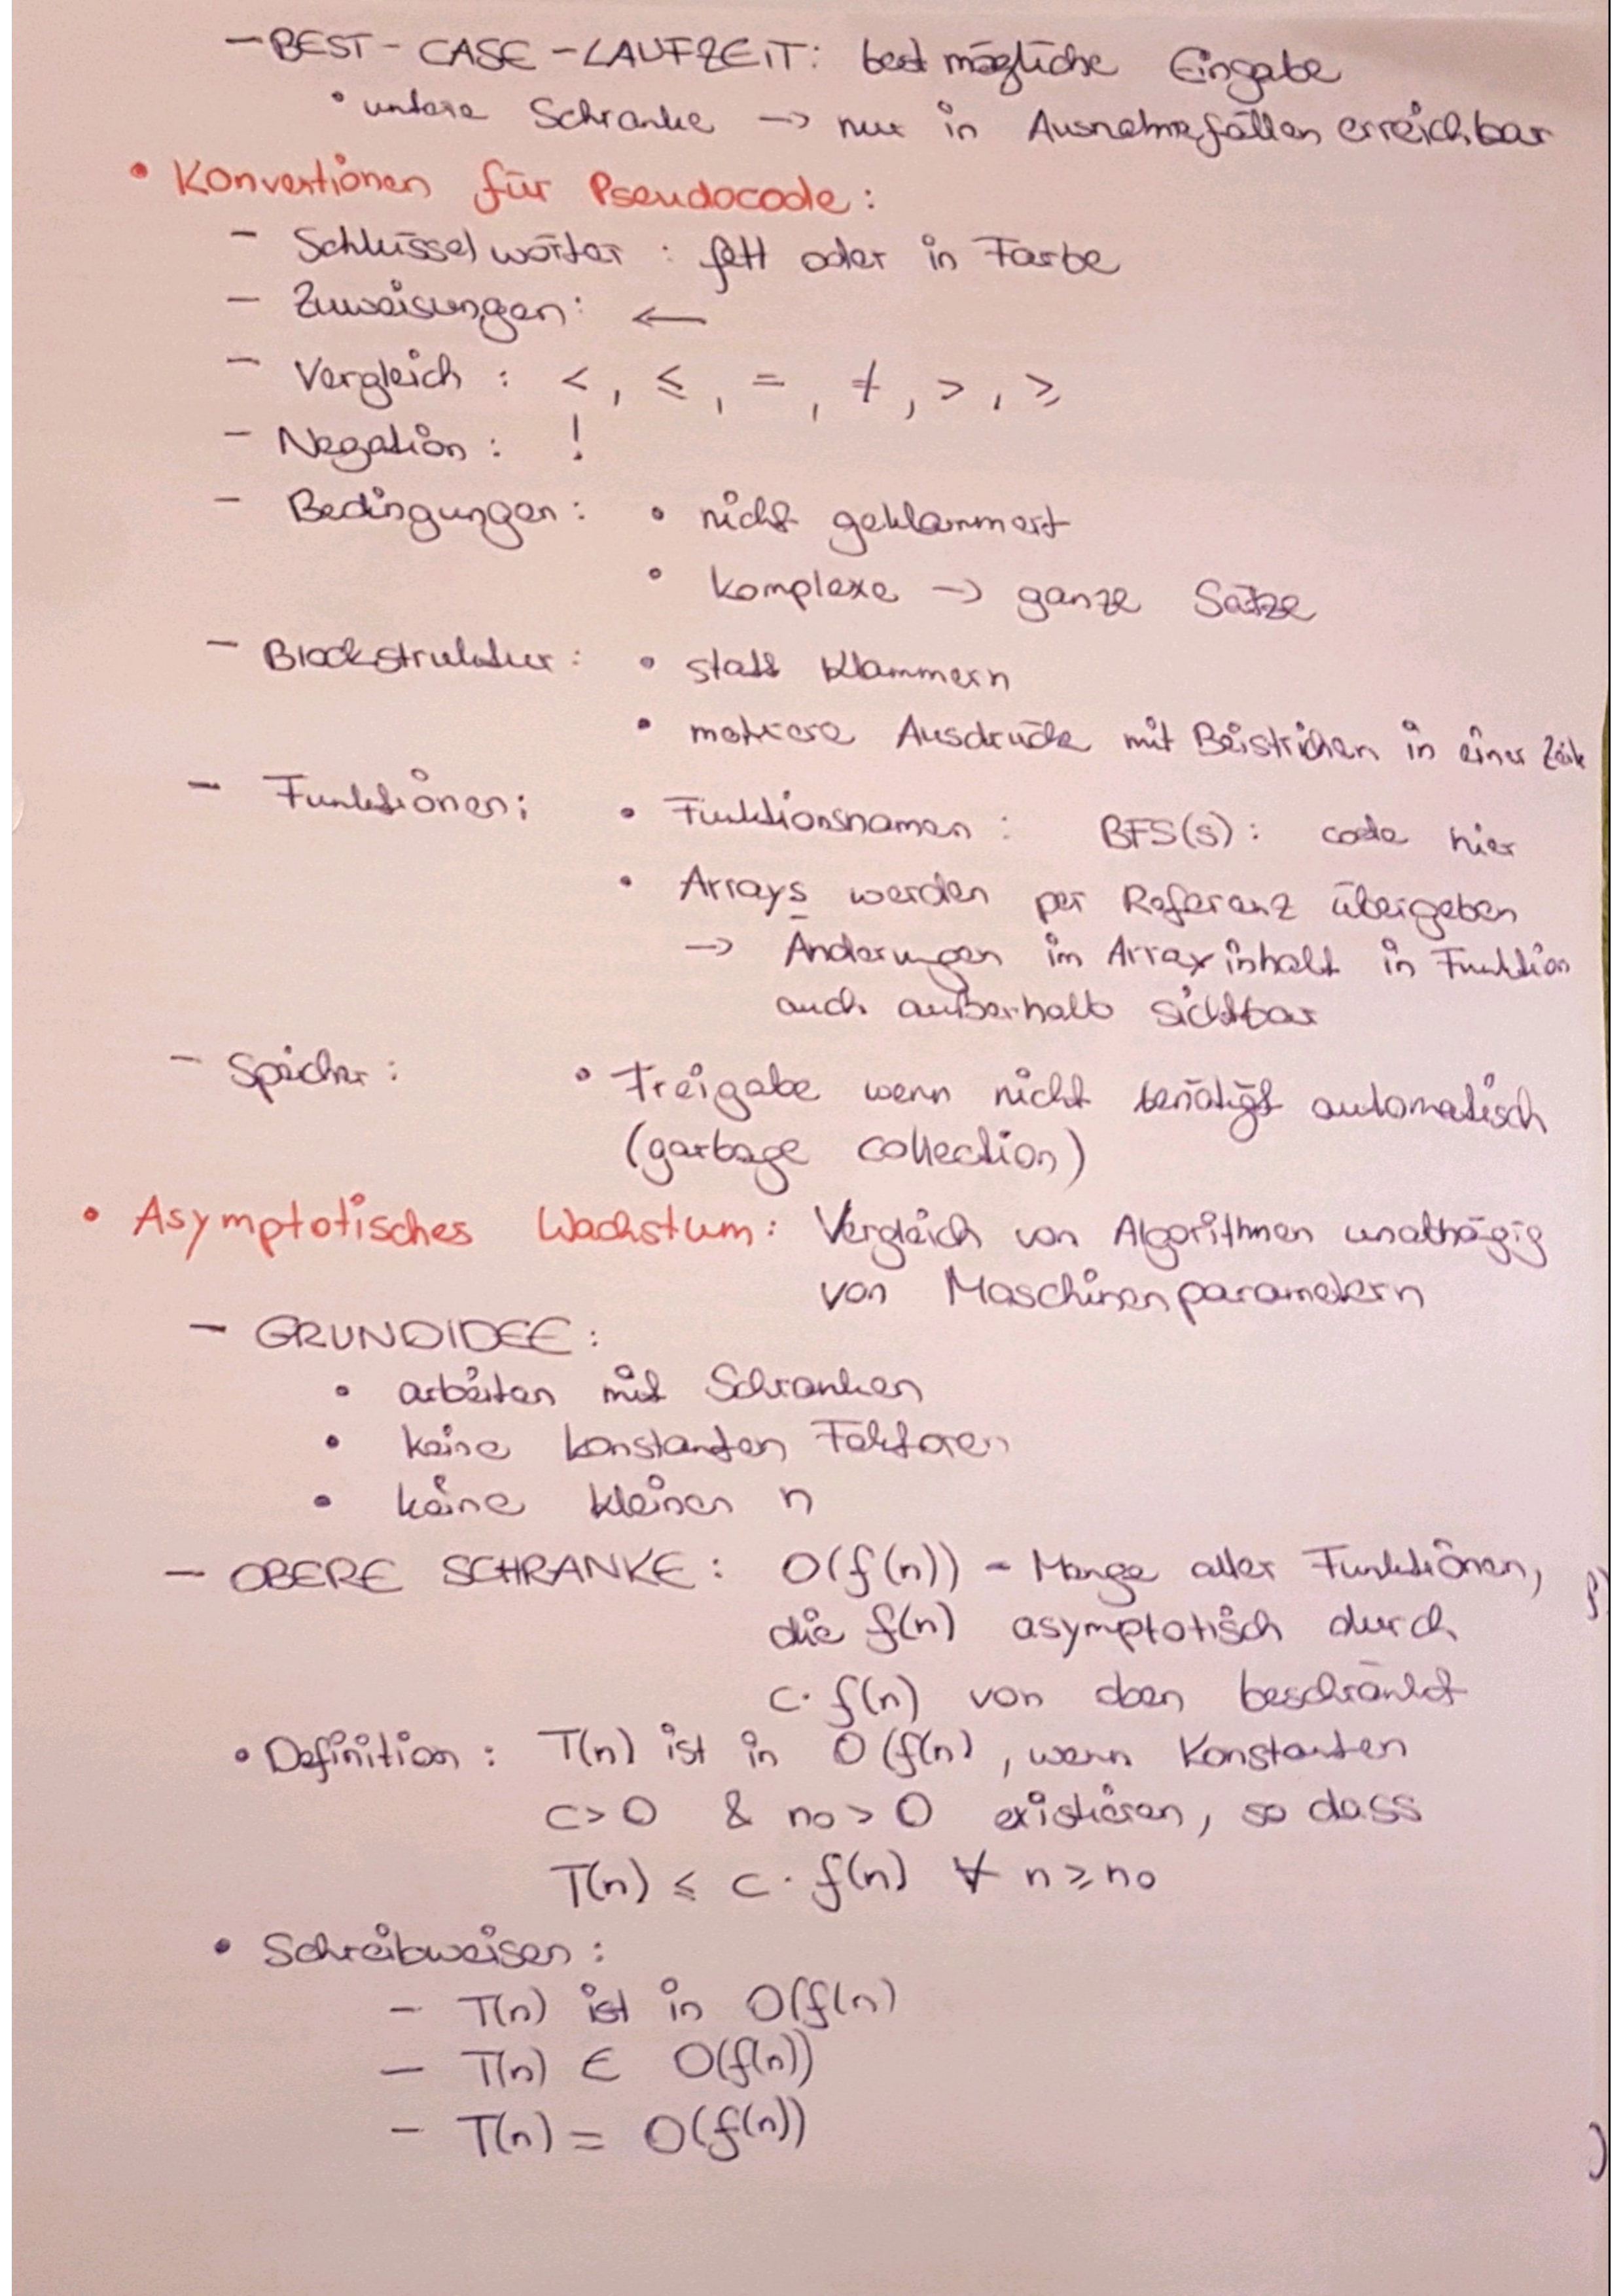 - BEST - CASE - LAUFZEIT: best mögliche Eingabe
• untere Schranke → nur in Ausnahmefällen erreichbar
• Konventionen für Pseudocode:
- Schlüsselwörter : fett oder in Farbe
- Zuweisungen: ←
- Vergleich : <, ≤, =, ≠, >, ≥
- Negation : !
- Bedingungen: • nicht geklammert
• komplexe → ganze Sätze
- Blockstruktur: • statt Klammern
• mehrere Ausdrücke mit Beistrichen in einer Zeile
- Funktionen: • Funktionsnamen : BFS(s): code hier
• Arrays werden per Referenz übergeben
→ Änderungen im Arrayinhalt in Funktion
auch außerhalb sichtbar
- Speicher: • Freigabe wenn nicht benötigt automatisch
(garbage collection)
• Asymptotisches Wachstum: Vergleich von Algorithmen unabhägig
von Maschinenparametern
- GRUNDIDEE:
• arbeiten mit Schranken
• keine konstanten Faktoren
• keine kleinen n
- OBERE SCHRANKE: O(f(n)) - Menge aller Funktionen,
die f(n) asymptotisch durch
c· f(n) von oben beschränkt
• Definition: T(n) ist in O(f(n), wenn Konstanten
c>0 & n₀>0 existieren, so dass
T(n) ≤ c · f(n) ∀ n ≥ n₀
• Schreibweisen:
- T(n) ist in O(f(n)
- T(n) ∈ O(f(n))
- T(n) = O(f(n))